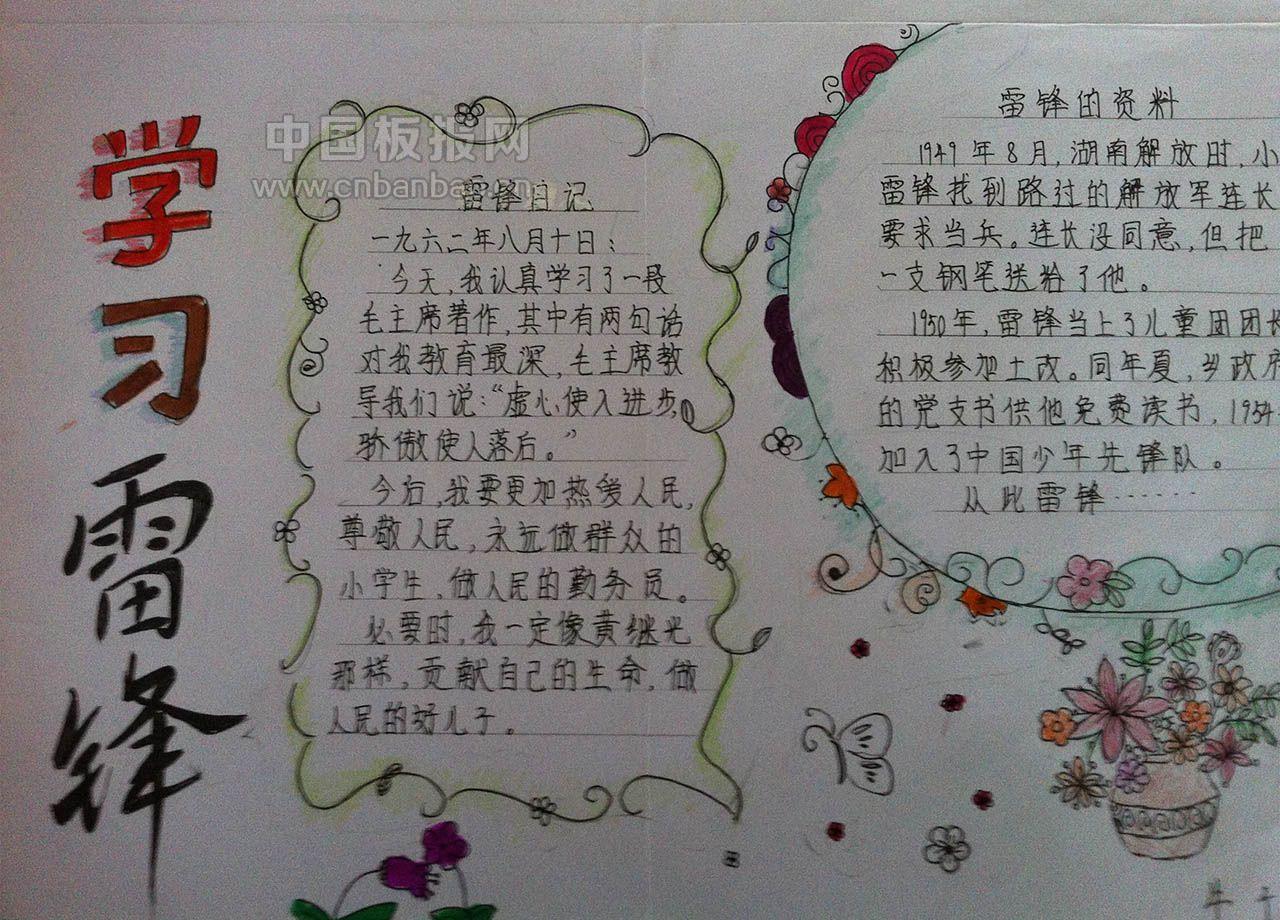 学习雷锋
中国板报网
www.cnbanbao.cn
雷锋日记
一九六二年八月十日：
今天，我认真学习了一段
毛主席著作，其中有两句话
对我教育最深，毛主席教
导我们说：“虚心使人进步，
骄傲使人落后。”
今后，我要更加热爱人民，
尊敬人民，永远做群众的
小学生，做人民的勤务员。
必要时，我一定像黄继光
那样，贡献自己的生命，做
人民的好儿子。
雷锋的资料
1949年8月，湖南解放时，小
雷锋找到路过的解放军连长
要求当兵。连长没同意，但把
一支钢笔送给了他。
1950年，雷锋当上了儿童团团长
积极参加土改。同年夏，乡政府
的党支书供他免费读书，1954
加入了中国少年先锋队。
从此雷锋……